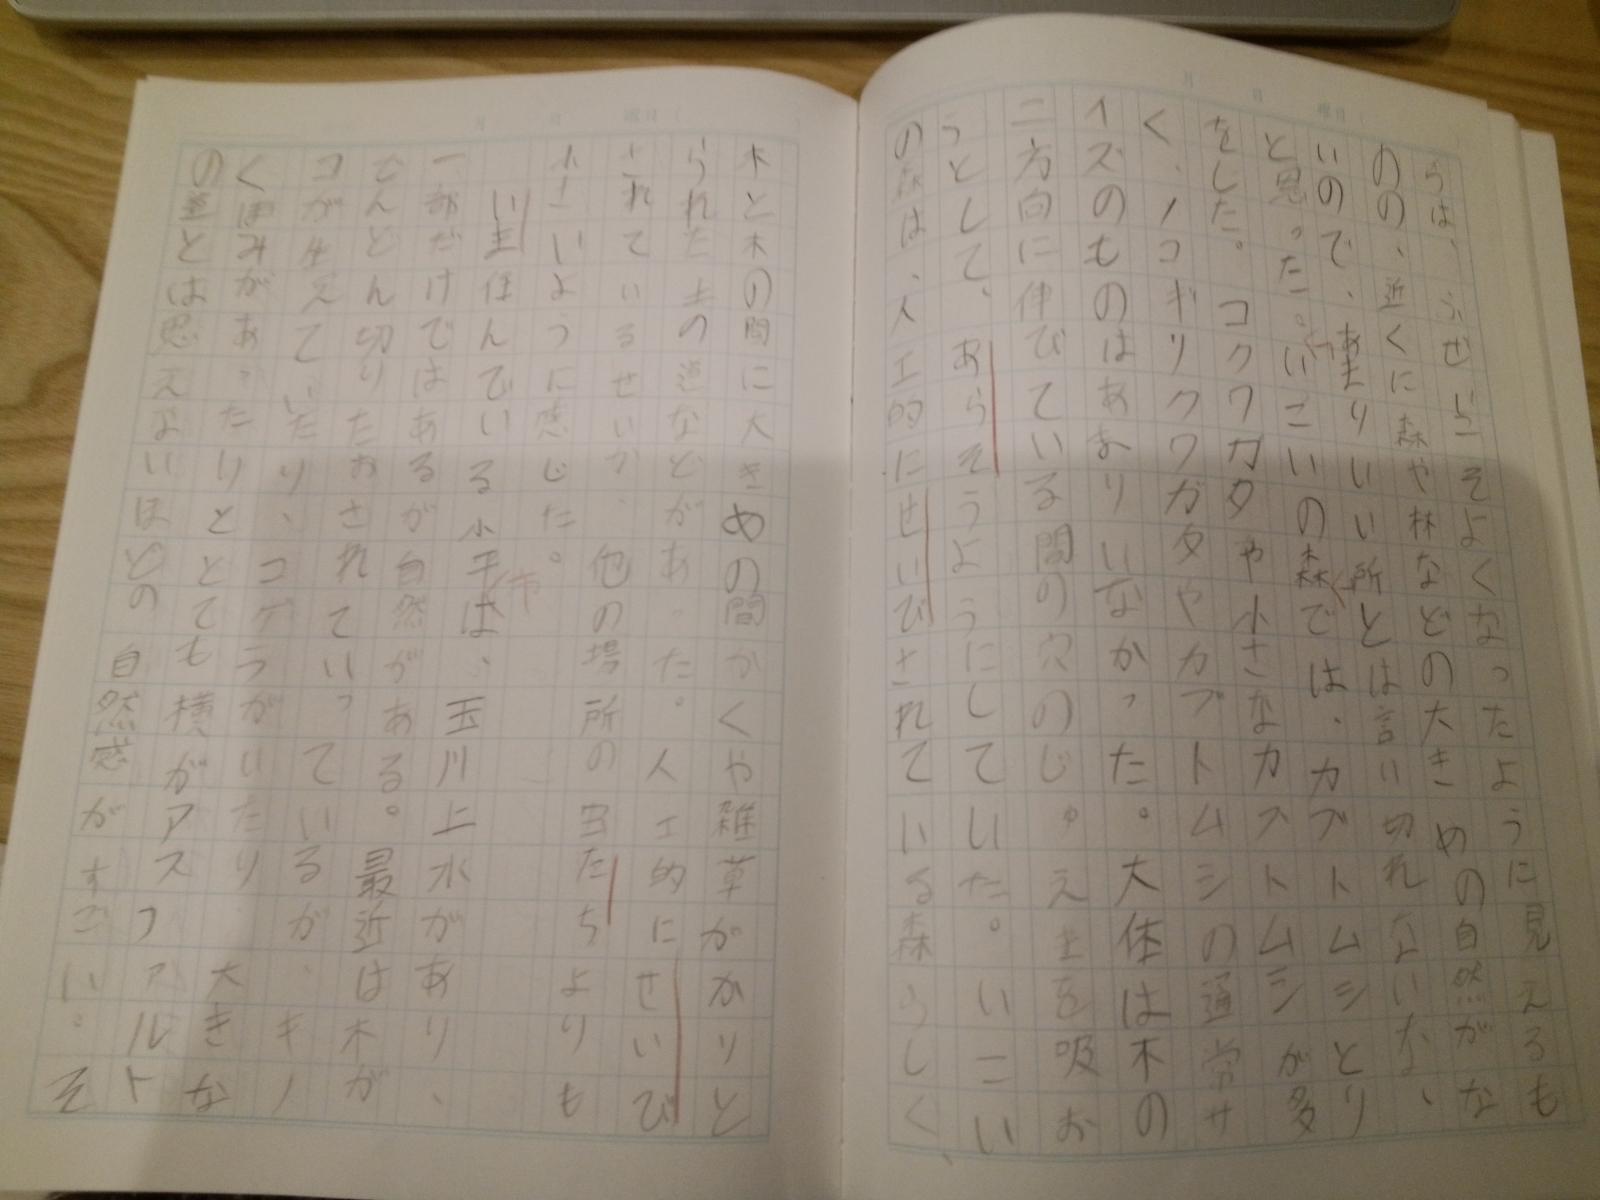 らは、ふぜいこそよくなったように見えるも
のの、近くに森や林などの大きめの自然がな
いので、あまりいい所とは言い切れないな、
と思った。いこいの森では、カブトムシとり
をした。コクワガタや小さなカブトムシが多
く、ノコギリクワガタやカブトムシの通常サ
イズのものはあまりいなかった。大体は木の
二方向に伸びている間の穴のじゅえきを吸お
うとして、あらそうようにしていた。いこい
の森は、人工的にせいびされている森らしく、
木と木の間に大きめの間かくや雑草がかりと
られた土の道などがあった。人工的にせいび
されているせいか、他の場所のヨたちよりも
小さいように感じた。
いま住んでいる小平は、玉川上水があり、
一部だけではあるが自然がある。最近は木が
どんどん切りたおされていっているが、キノ
コが生えていたり、コゲラがいたり、大きな
くぼみがあったりととても横がアスファルト
の道とは思えないほどの自然感がすごい。そ